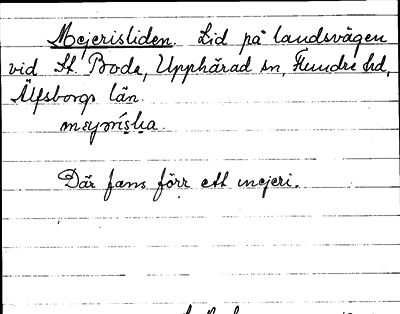 Mejerisliden. Lid på landsvägen
vid St. Boda, Upphärad sn, Flundre hd,
Älfsborgs län.
Där fans förr ett mejeri.